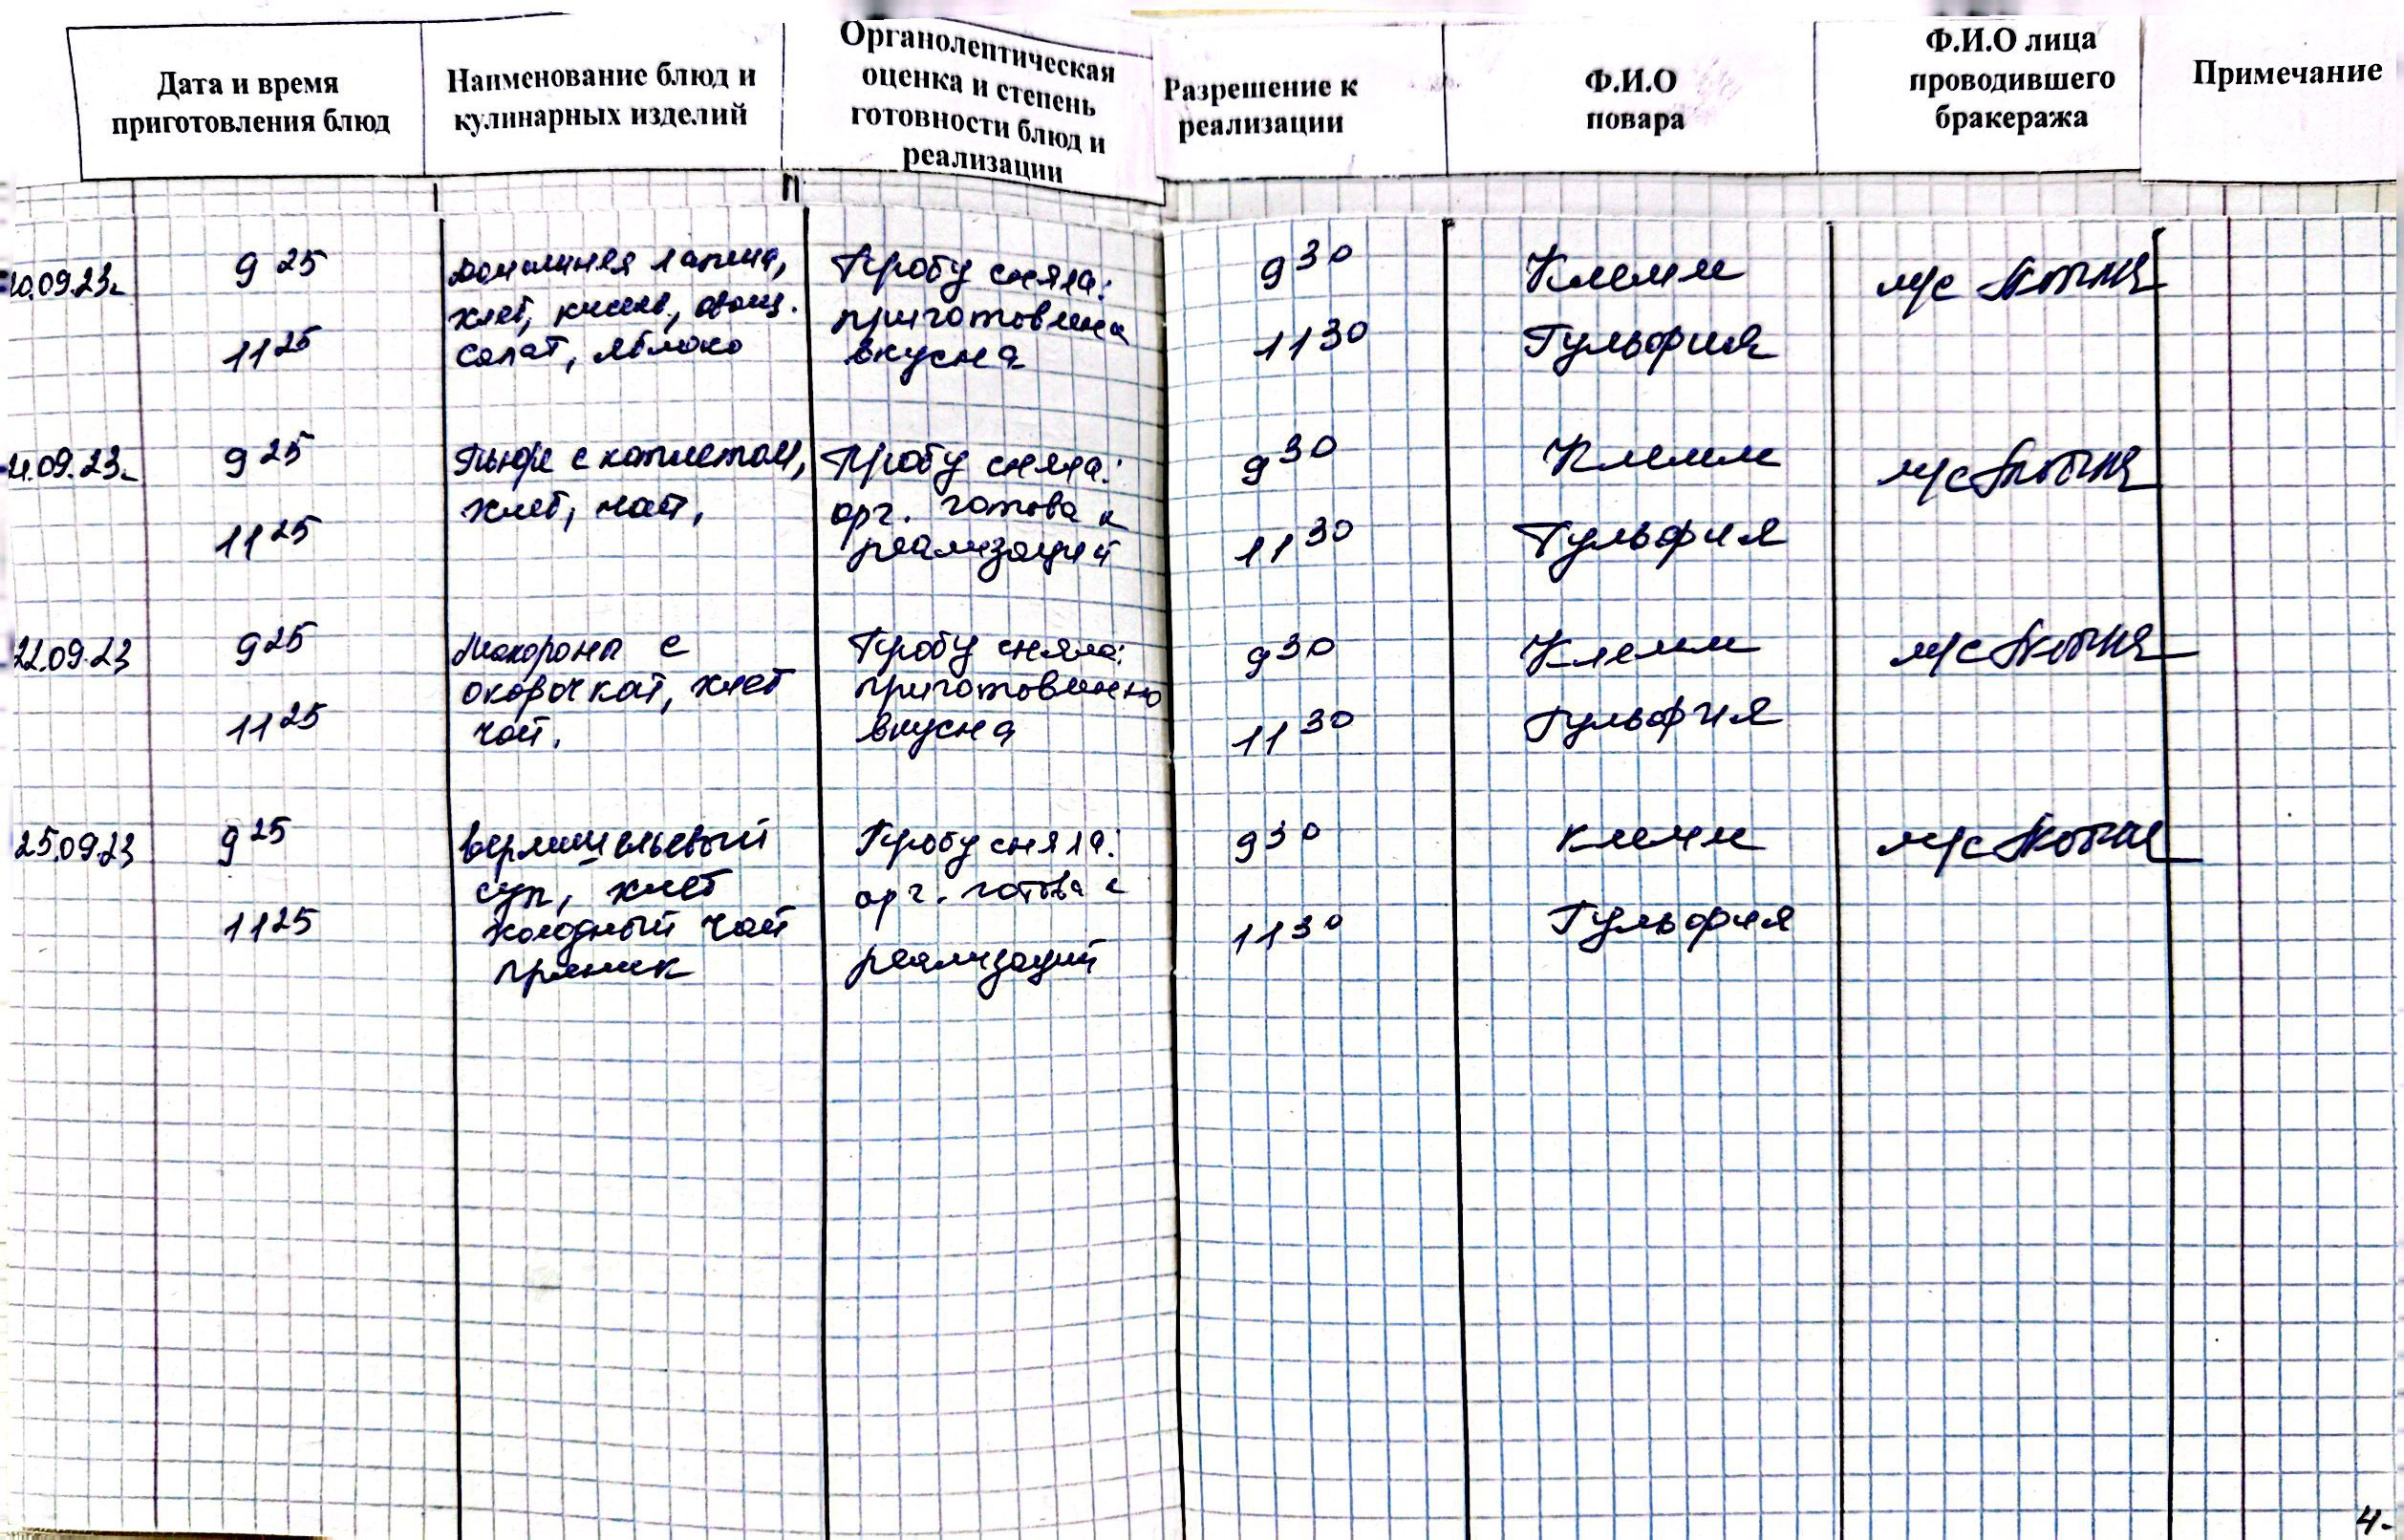 Дата и время
приготовления блюд
Наименование блюд и
кулинарных изделий
Органолептическая
оценка и степень
готовности блюд и
реализации
Разрешение к
реализации
Ф.И.О
повара
Ф.И.О лица
проводившего
бракеража
Примечание
20.09.23г
9 25
11 25
домашняя лапша,
хлеб, кисель, овощ.
салат, яблоко
Пробу сняла:
приготовлена
вкусна
9 30
11 30
Клемм
Гульфия
м/с
21.09.23г
9 25
11 25
Пьюре с котлетом,
хлеб, чай,
Пробу сняла:
орг. готова к
реализаций
9 30
11 30
Клемм
Гульфия
м/с
22.09.23
9 25
11 25
Макароны с
окорочкай, хлеб
чай.
Пробу сняла:
приготовлено
вкусна
9 30
11 30
Клемм
Гульфия
м/с
25.09.23
9 25
11 25
вермишельевый
суп, хлеб
холодный чай
пряник
Пробу сняла:
орг. готова к
реализаций
9 30
11 30
Клемм
Гульфия
м/с
4-